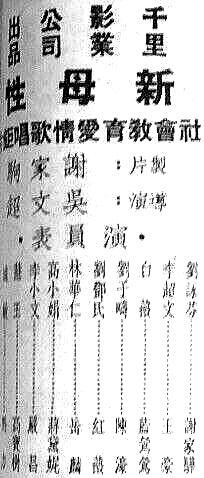 千里影業公司出品
新母性
社會教育愛情歌唱
製片:謝家駒
導演:吳文超
·演員表·
劉詠芬……謝家驊
李超文……王濛
白薇……藍鶯鶯
劉子疇……陳濠
劉鄧氏……紅薇
林華仁……岳麟
高小娟……蔣黛妮
李小文……嚴昌